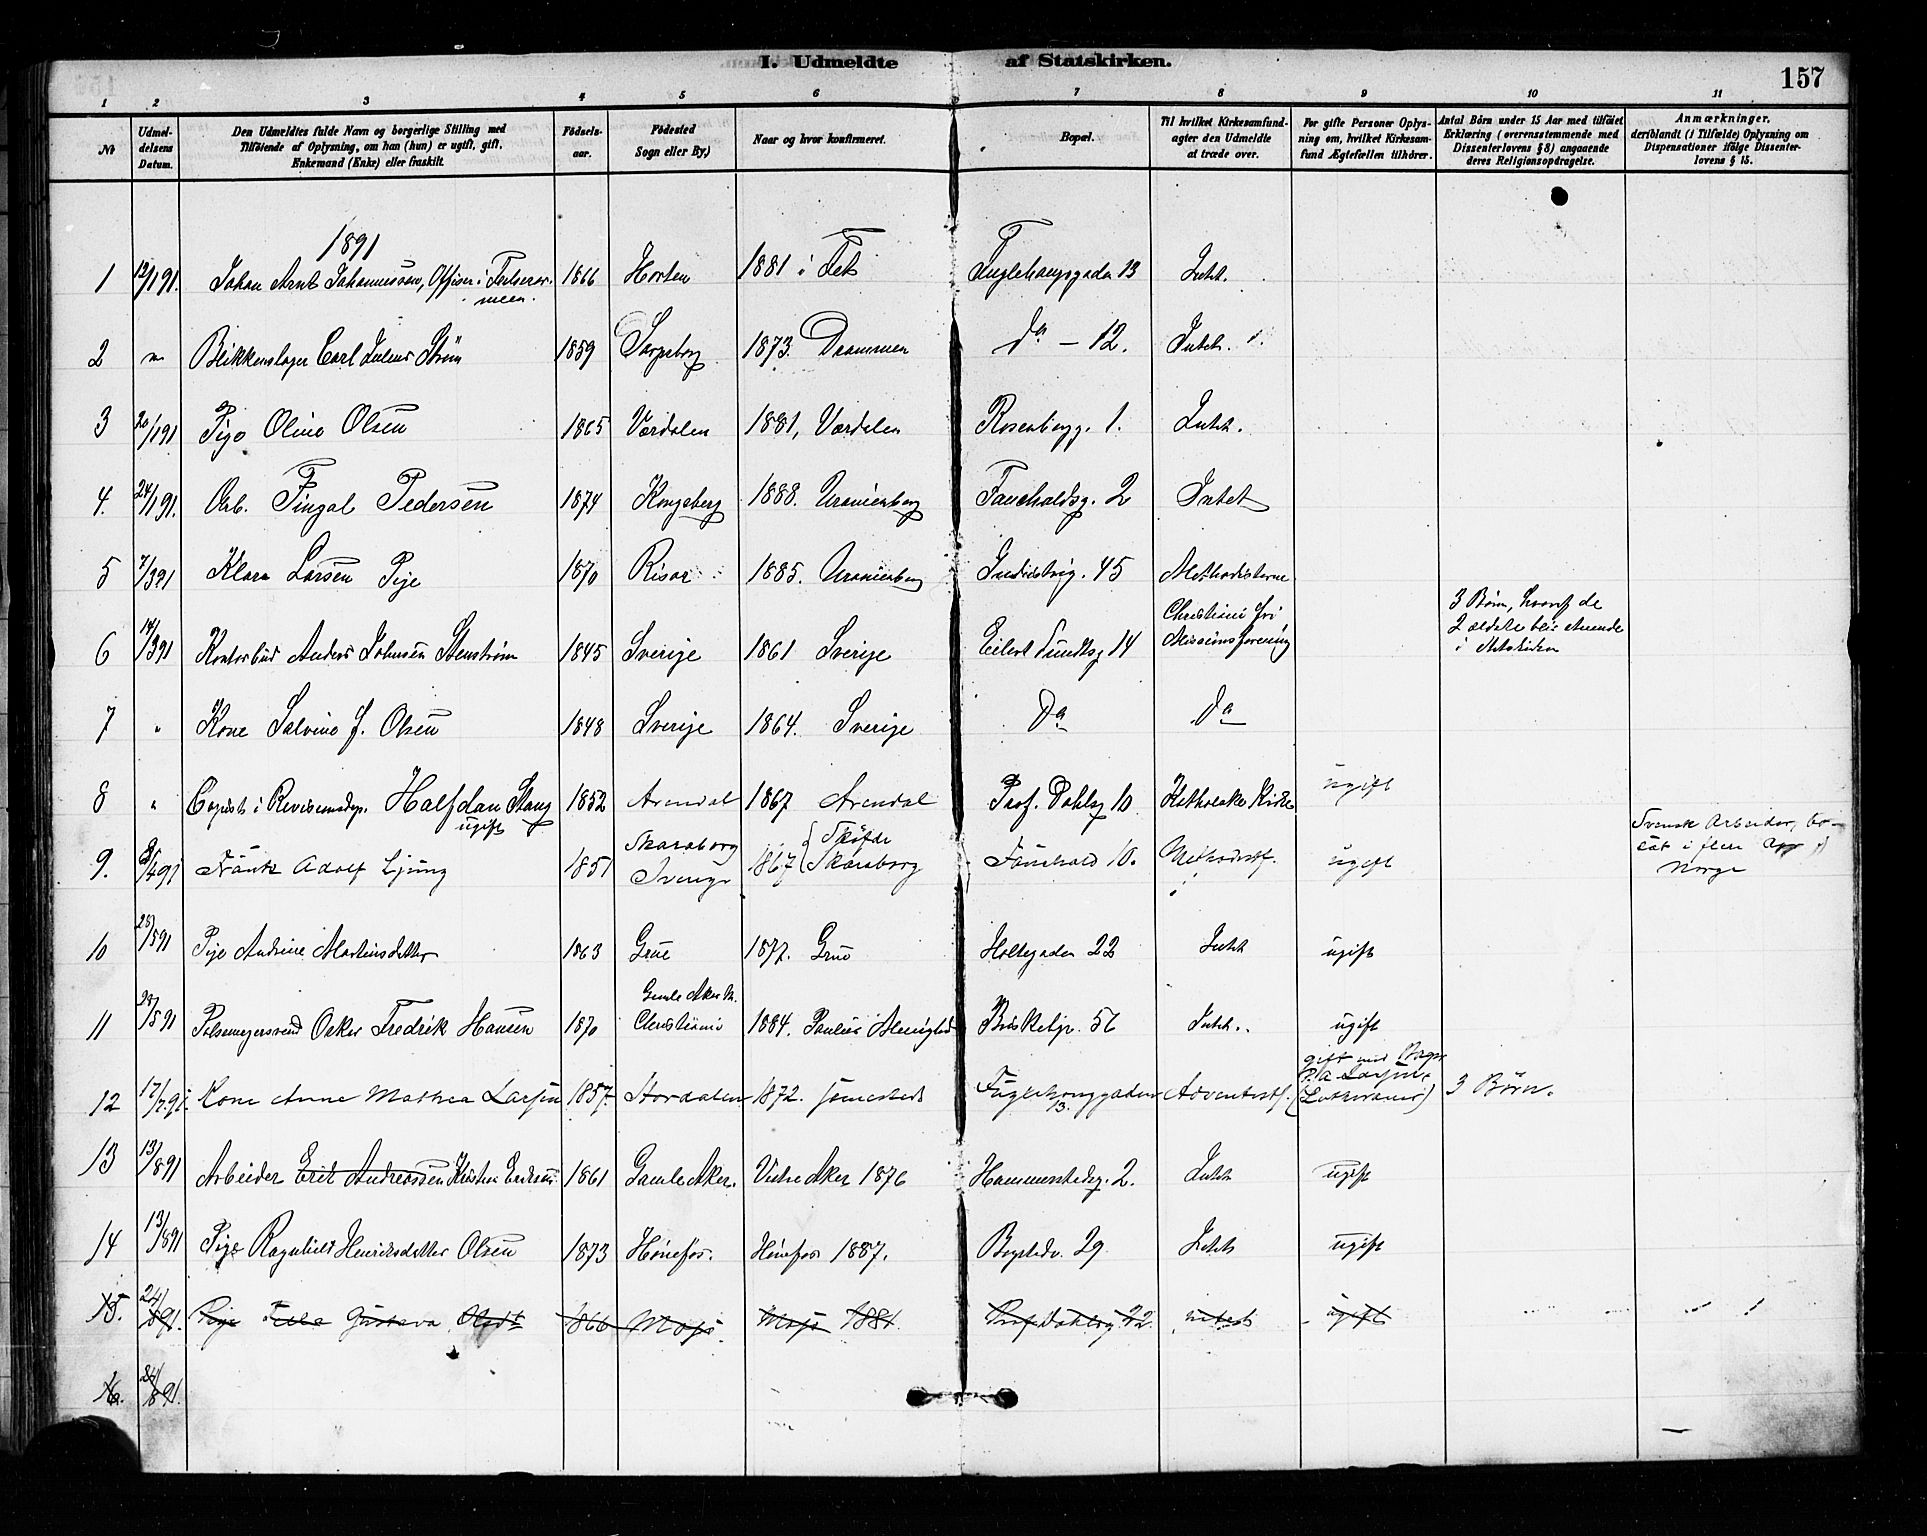 I. Udmeldte af Statskirken.
157
1 2 3 4 5 6 7 8 9 10 11
No
Udmeldelsens Datum.
Den Udmeldtes fulde Navn og borgerlige Stilling med
Tilföiende af Oplysning, om han (hun) er ugift, gift,
Enkemand (Enke) eller fraskilt.
Födselsaar.
Födested
Sogn eller By.)
Naar og hvor konfirmeret.
Bopæl.
Til hvilket Kirkesamfund
agter den Udmeldte
at træde over.
For gifte Personer Oplysning om, hvilket Kirkesamfund Ægtefællen tilhörer.
Antal Börn under 15 Aar med tilföiet
Erklæring (overensstemmende med
Dissenterlovens § 8) angaaende
deres Religionsopdragelse.
Anmærkninger,
deriblandt (i Tilfælde) Oplysning om
Dispensationer ifölge Dissenterlovens § 15.
1891
1 12/1 91. Johan Arnt Johannessen, Officer i Frelsesarmeen. 1866 Horten 1881 i Fet Fuglehaugsgaden 13 Intet.
2 " Blikkenslager Carl Julius Ström 1859 Sarpsborg 1873. Drammen Do – 12. Intet.
3 20/1 91 Pige Oline Olsen 1865 Værdalen 1881, Værdalen Rosenborgg. 1. Intet.
4. 24/1 91. Arb. Fingal Pedersen 1874 Kongsberg 1888. Uranienborg Fauchaldsg. 2 Intet
5 7/3 91 Klara Larsen Pige 1870 Risør 1885. Uranienborg Industrig. 45 Methodisterne
6 14/3 91 Kontorbud Anders Johnsen Stenström 1845 Sverige 1861 Sverige Eilert Sundtsg 14 Christiania fri Missionsforening 3 Børn, hvoraf de 2 ældste blir staaende i Statskirken
7 " Kone Salvine J. Olsen 1848 Sverige 1864. Sverige Do Do
8 " Copist i Revisionsdep. Halfdan Stang ugift 1852 Arendal 1867 Arendal Prof. Dahlsg 10 Katholske Kirke ugift
9. 8/4 91 Frantz Adolf Ljung 1851 Skaraborg Sverige 1867 Sköfde Skaraborg Fauchald 10. Methodistf. ugift Svensk Arbeider, bosat i flere Aar i Norge
10 28/5 91 Pige Andrine Martinsdatter 1863 Grue 1877. Grue Holtegaden 22 Intet ugift
11 28/5 91 Pølsemagersvend Oskar Fredrik Hansen 1870 Gamle Aker M. Christiania 1884. Paulus Menighed Briskebyv. 56 Intet. ugift
12 17/7 91. Kone Anne Mathea Larsen 1857. Stordalen 1872. sammesteds Fuglehauggaden 13. Adventistf. gift med P. A. Larsen (Lutheraner) 3 Børn.
13 13/8 91 Arbeider Erik Andreassen Kristian Eriksen 1861 Gamle Aker. Vestre Aker 1876 Hammerstadsg. 2. Intet ugift
14 13/8 91 Pige Ragnhild Henriksdatter Olsen 1873 Hönefos. Hönefos 1887. Bogstadv. 29 Intet ugift
15. 24/8 91. Pige Gustava 1866 Moss Moss 1881. Prof Dahlsg 22 intet ugift
16. 24/8 91.